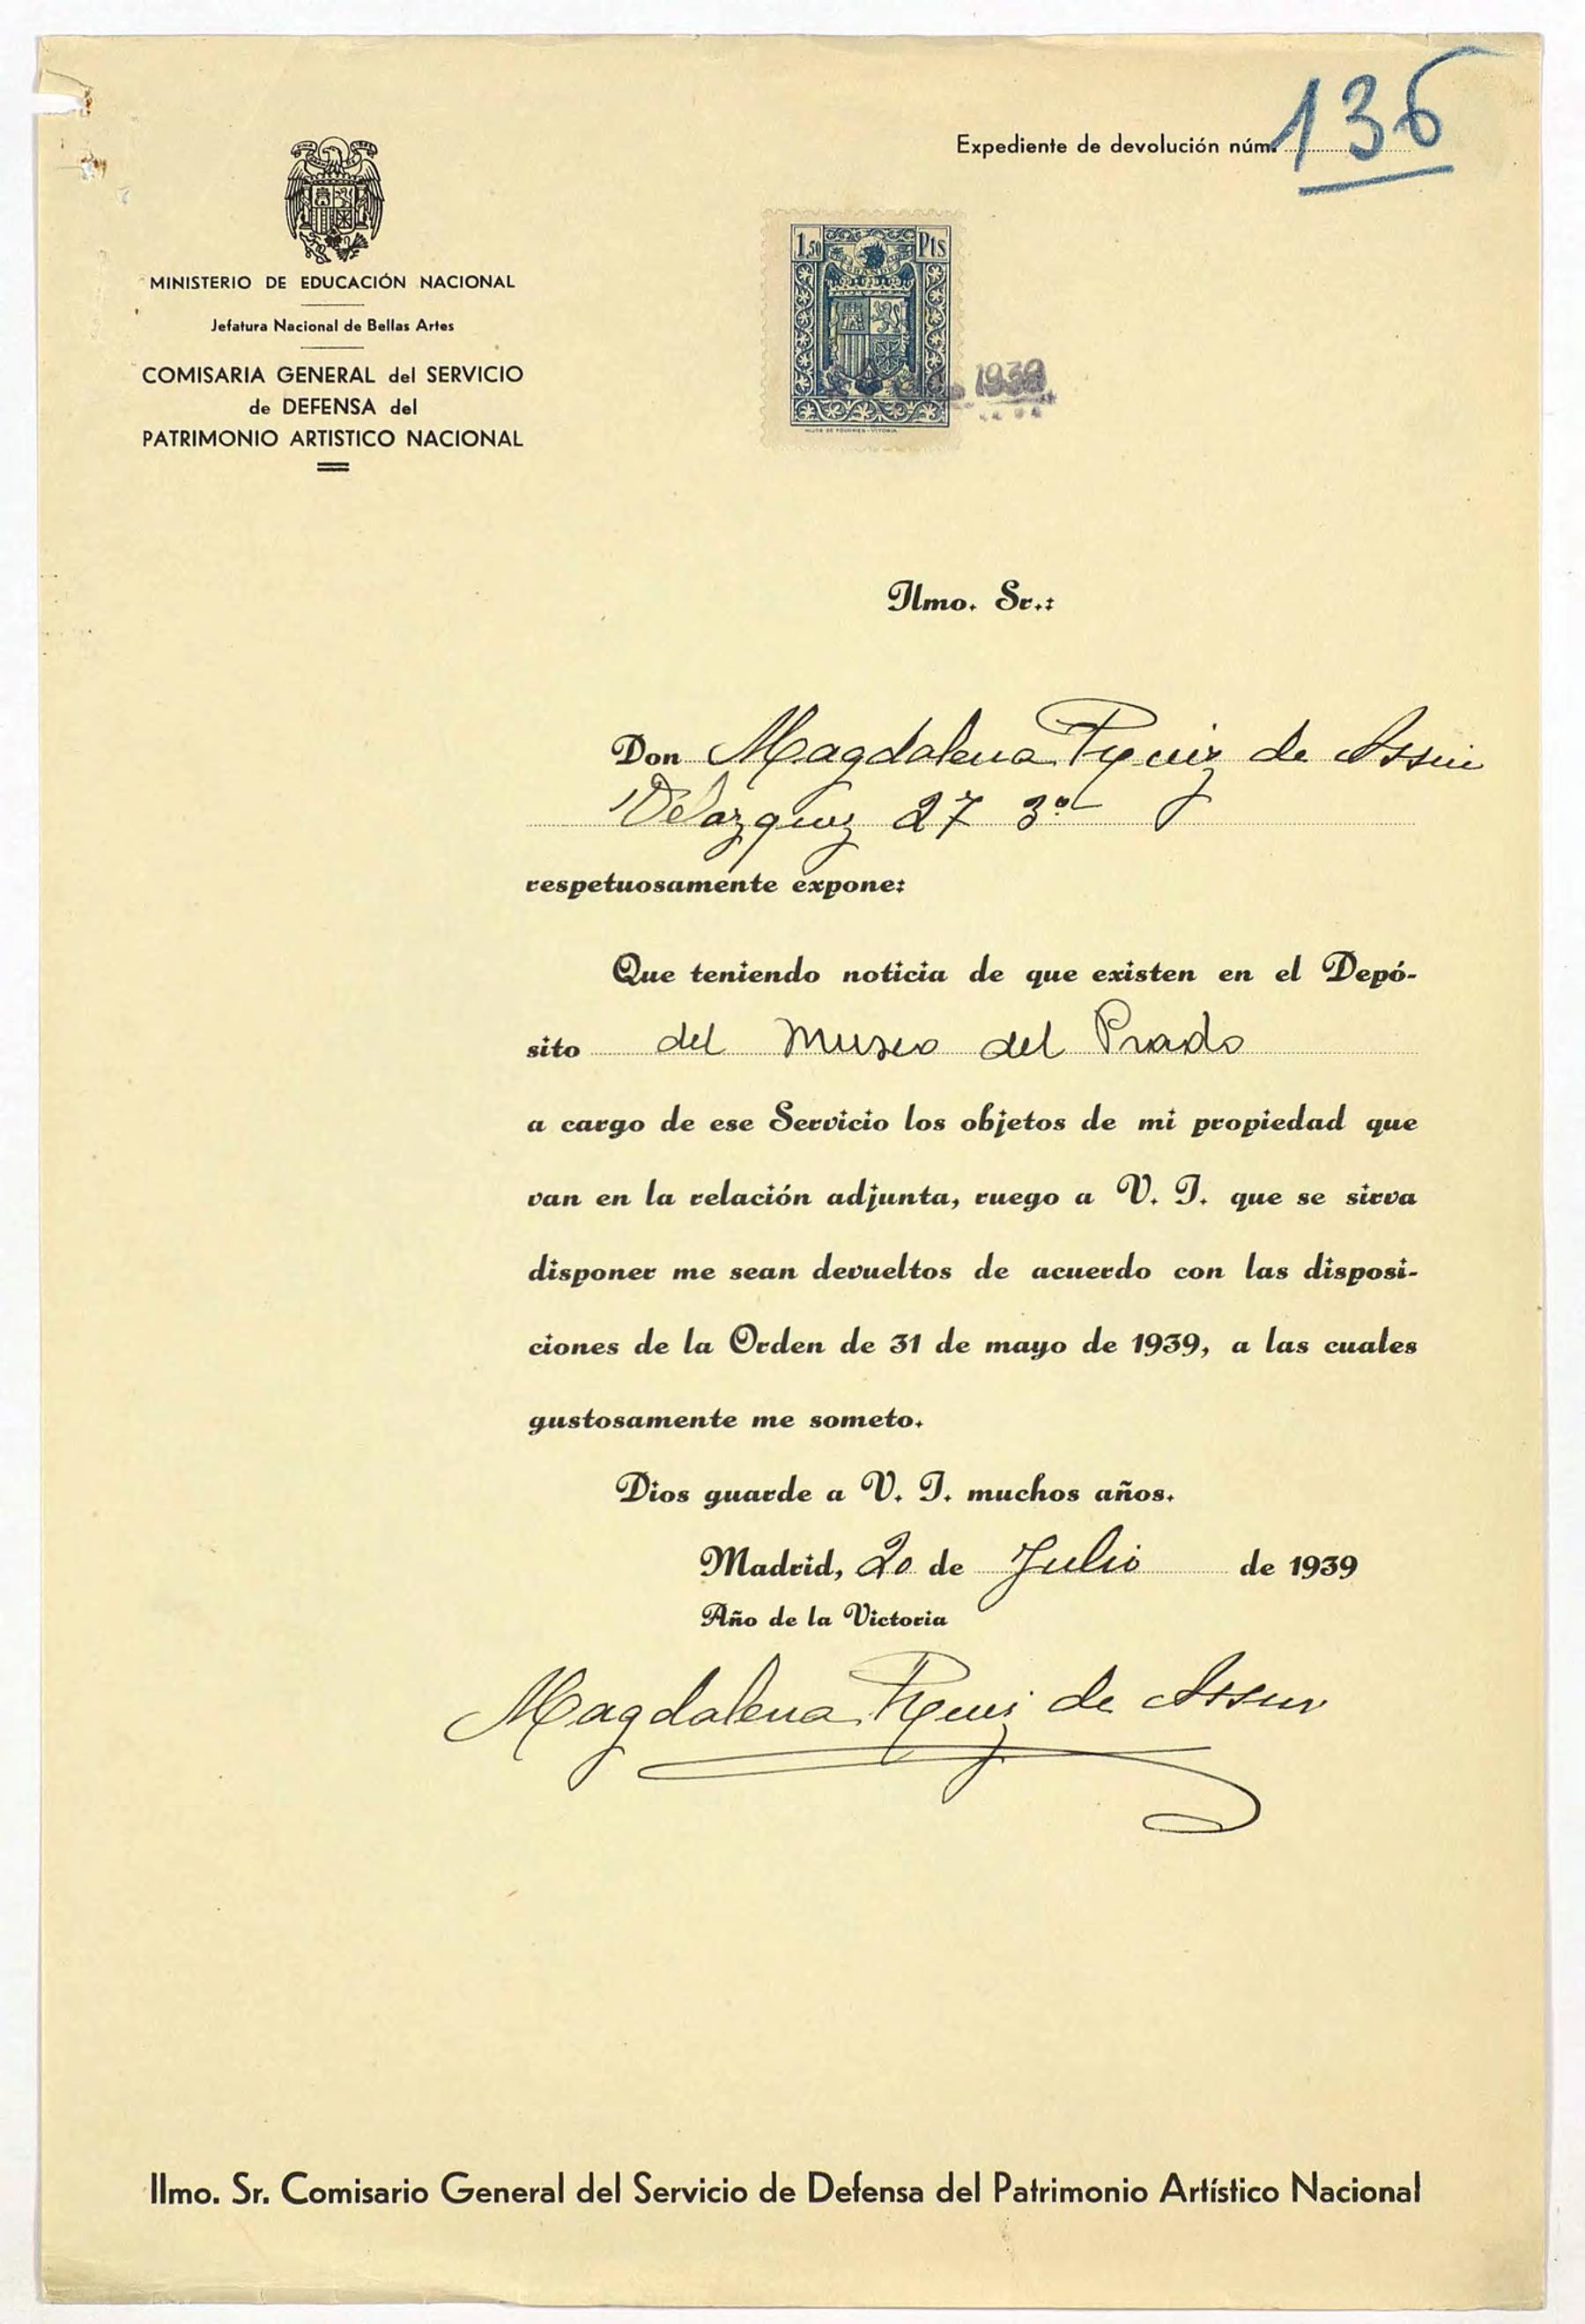 Expediente de devolución núm. 136
MINISTERIO DE EDUCACIÓN NACIONAL
Jefatura Nacional de Bellas Artes
COMISARIA GENERAL del SERVICIO
de DEFENSA del
PATRIMONIO ARTISTICO NACIONAL
1,50 Pts
1939
Ilmo. Sr.:
Don Magdalena Ruiz de
Velazquez 27 3º
respetuosamente expone:
Que teniendo noticia de que existen en el Depó-
sito del Museo del Prado
a cargo de ese Servicio los objetos de mi propiedad que
van en la relación adjunta, ruego a V. I. que se sirva
disponer me sean devueltos de acuerdo con las disposi-
ciones de la Orden de 31 de mayo de 1939, a las cuales
gustosamente me someto.
Dios guarde a V. I. muchos años.
Madrid, 20 de Julio de 1939
Año de la Victoria
Magdalena Ruiz de
Ilmo. Sr. Comisario General del Servicio de Defensa del Patrimonio Artístico Nacional